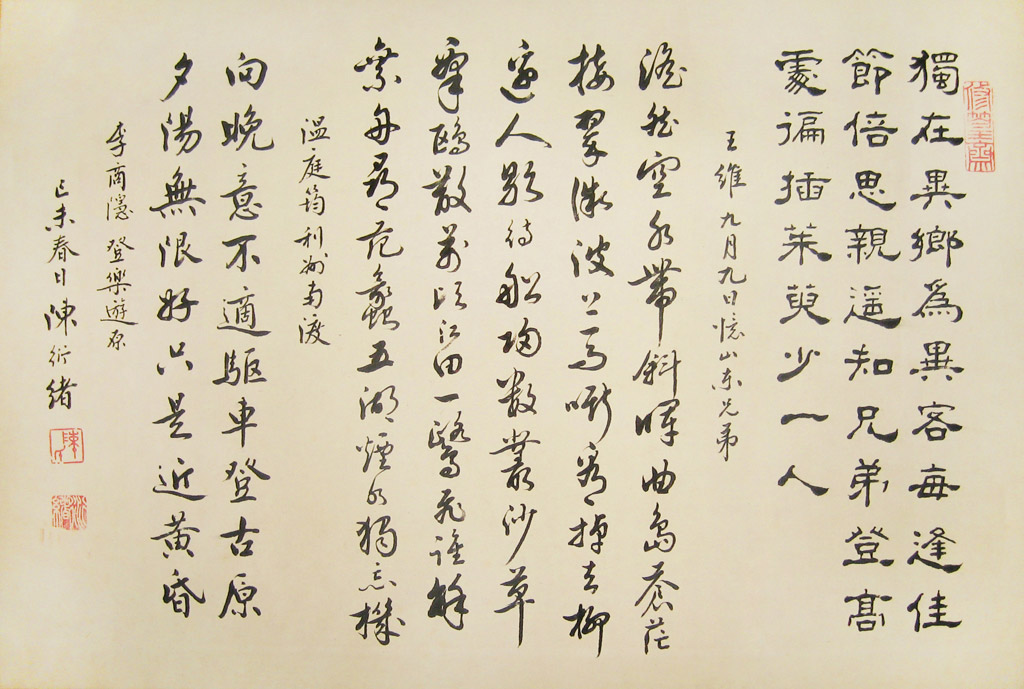 獨在異鄉爲異客每逢佳
節倍思親遥知兄弟登高
處徧插茱萸少一人
王維 九月九日憶山東兄弟
澹然空水帶斜暉曲島蒼茫
接翠微波上馬嘶看掉去柳
邊人影待船歸數叢沙草
羣鷗散萬頃江田一鷺飛誰解
乘舟尋范蠡五湖煙水獨忘機
温庭筠利州南渡
向晚意不適驅車登古原
夕陽無限好只是近黃昏
李商隱 登樂遊原
己未春日陳衍緒